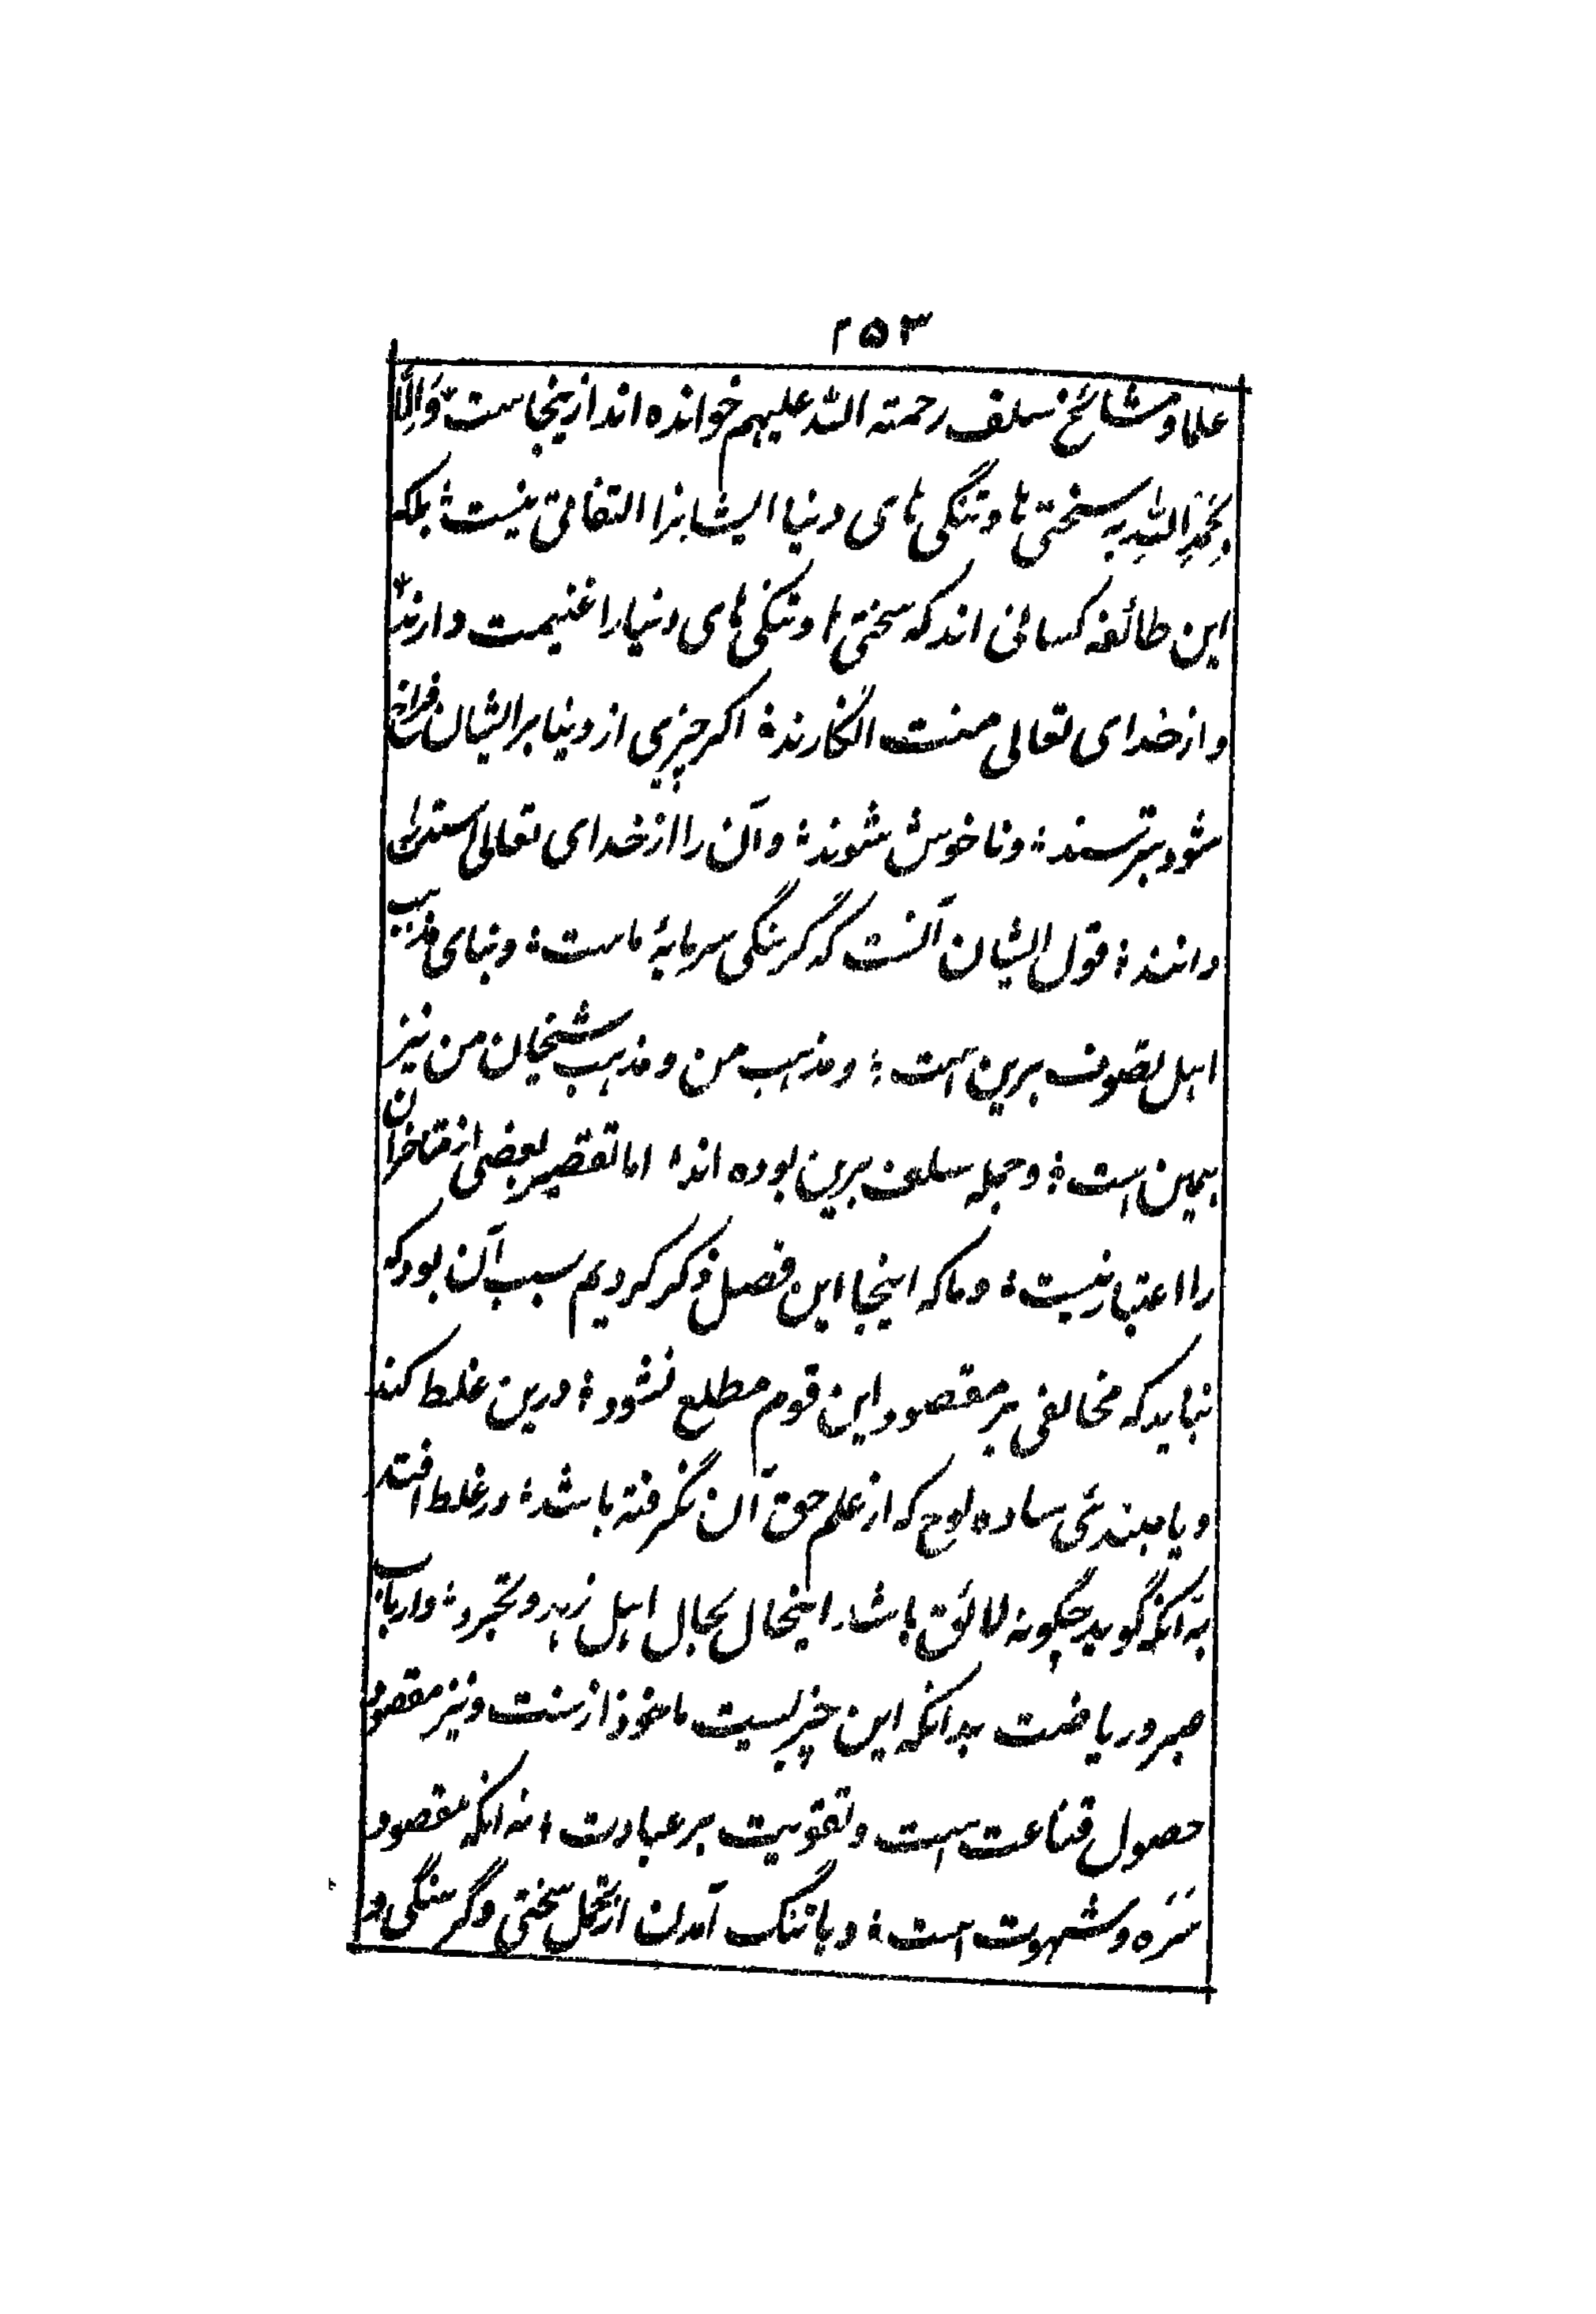 ۲۵۳
علما و مشائخ سلف رحمته الله علیهم خوانده اند ازینجاست؛ وَاِلَّا
بِحَمْدِاللّٰهِ به سختی ها و تنگی های دنیا ایشانرا التفاتی نیست؛ بلکه
این طائفه کسانی اند که سختی ها و تنگی های دنیا را غنیمت دارند؛
و از خدای تعالی منت انگارند؛ اگر چیزی از دنیا بر ایشان فراخ
شود بترسند؛ و ناخوش شوند؛ و آن را از خدای تعالی استدراج
دانند؛ قول ایشان آنست که گرسنگی سرمایۀ ماست؛ و بنای مذهب
اهل تصوف برین است؛ و مذهب من و مذهب شیخان من نیز
همین است؛ و جمله سلف برین بوده اند؛ اما تقصیر بعضی از متاخران
را اعتبار نیست؛ و ما که اینجا این فصل ذکر کردیم سبب آن بود که
نباید که مخالفی بر مقصود این قوم مطلع نشود؛ و درین غلط کند
و یا مبتدئی ساده لوح که از علم حق آن نگرفته باشد؛ در غلط افتد
به آنکه گوید چگونه لائق باشد اینحال بحال اهل زهد و تجرد؛ و ارباب
صبر و ریاضت بدانکه این چیزیست ماخوذ از سنت و نیز مقصود
حصول قناعت است و تقویت بر عبادت؛ نه انکه مقصود
شَرَه و شهوت است؛ و یا تنگ آمدن از تحمل سختی و گرسنگی و